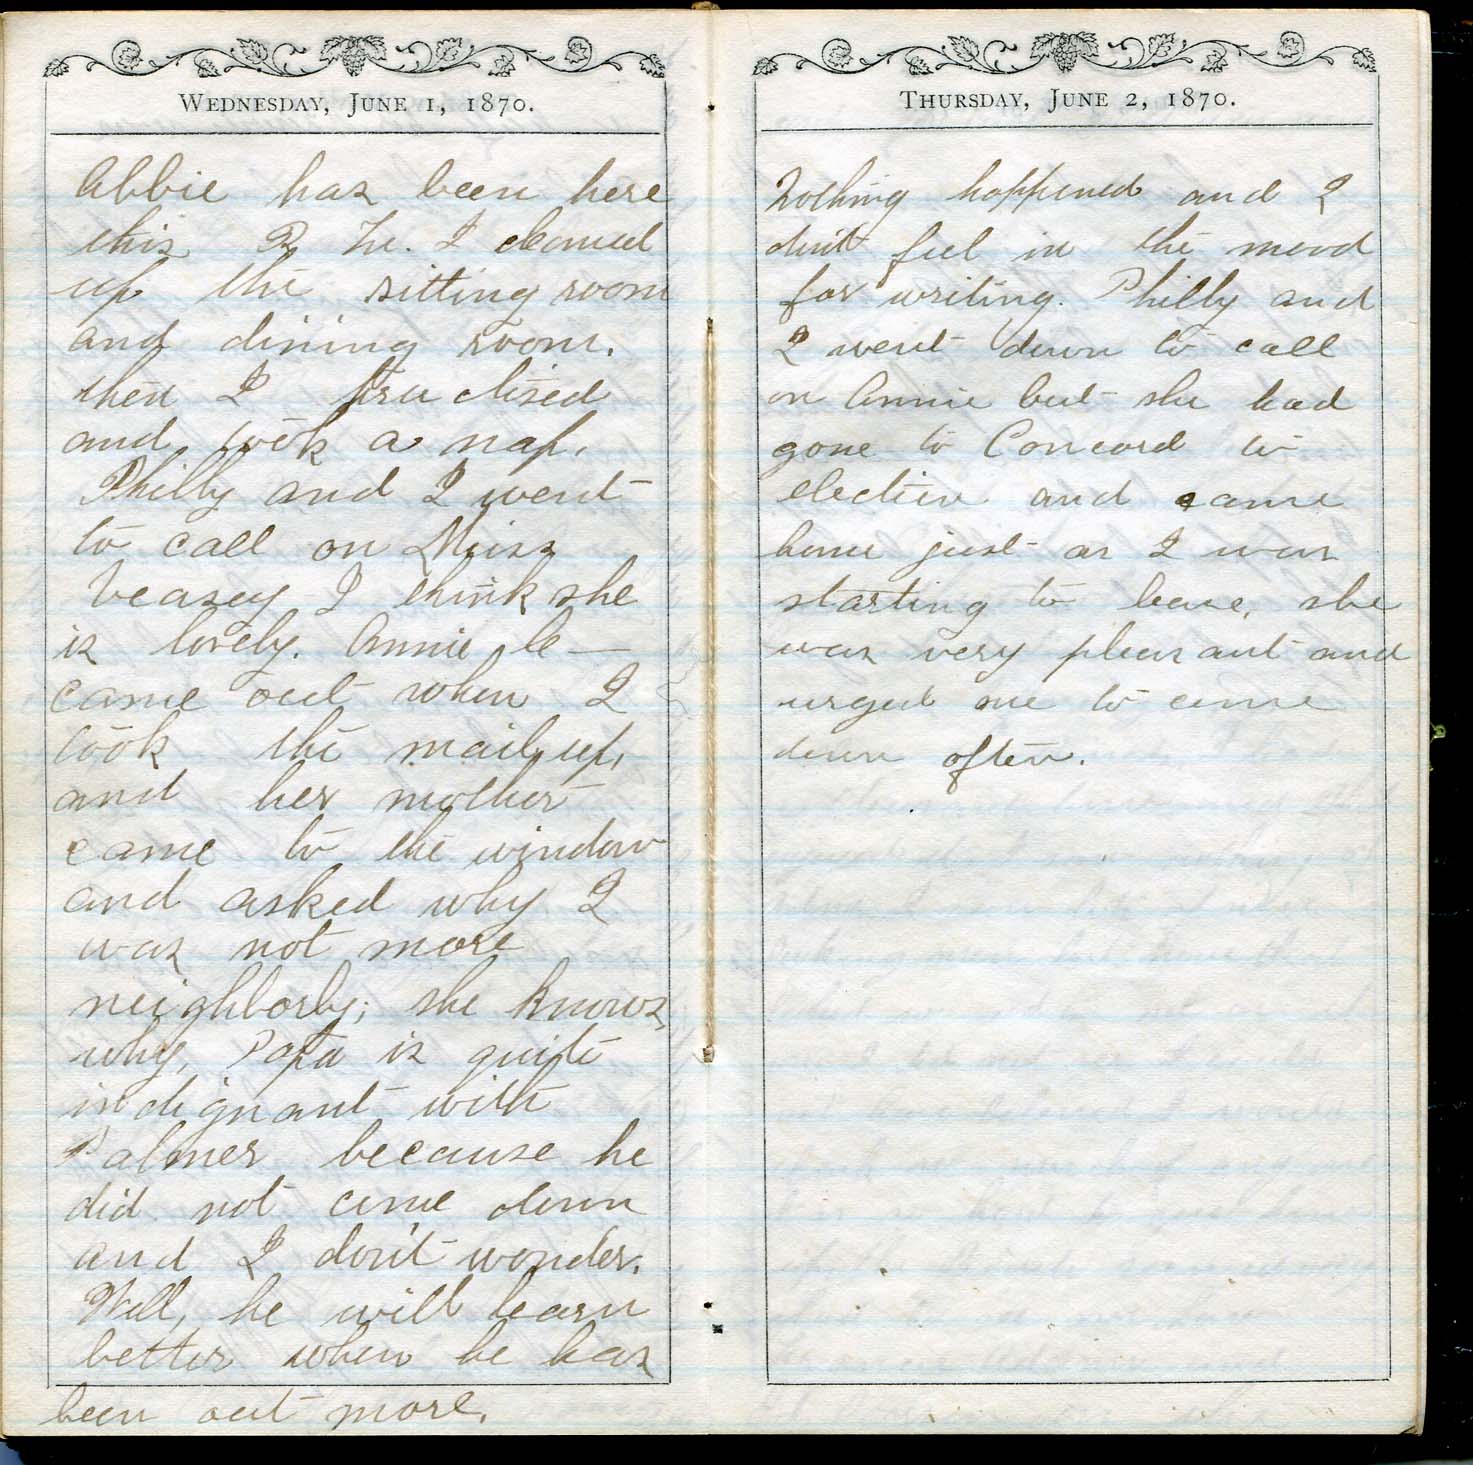 WEDNESDAY, JUNE 1, 1870.
Abbie has been here
this P. M. I cleaned
up the sitting room
and dining room.
then I practised
and took a nap.
Philly and I went
to call on Miss
Veazey I think she
is lovely. Annie C—
came out when I
took the mail up,
and her mother
came to the window
and asked why I
was not more
neighborly; she knows
why, Papa is quite
indignant with
Palmer because he
did not come down
and I don't wonder.
Well, he will learn
better when he has
been out more.
THURSDAY, JUNE 2, 1870.
Nothing happened and I
don't feel in the mood
for writing. Philly and
I went down to call
on Annie but she had
gone to Concord to
election and came
home just as I was
starting to leave, she
was very pleasant and
urged me to come
down often.